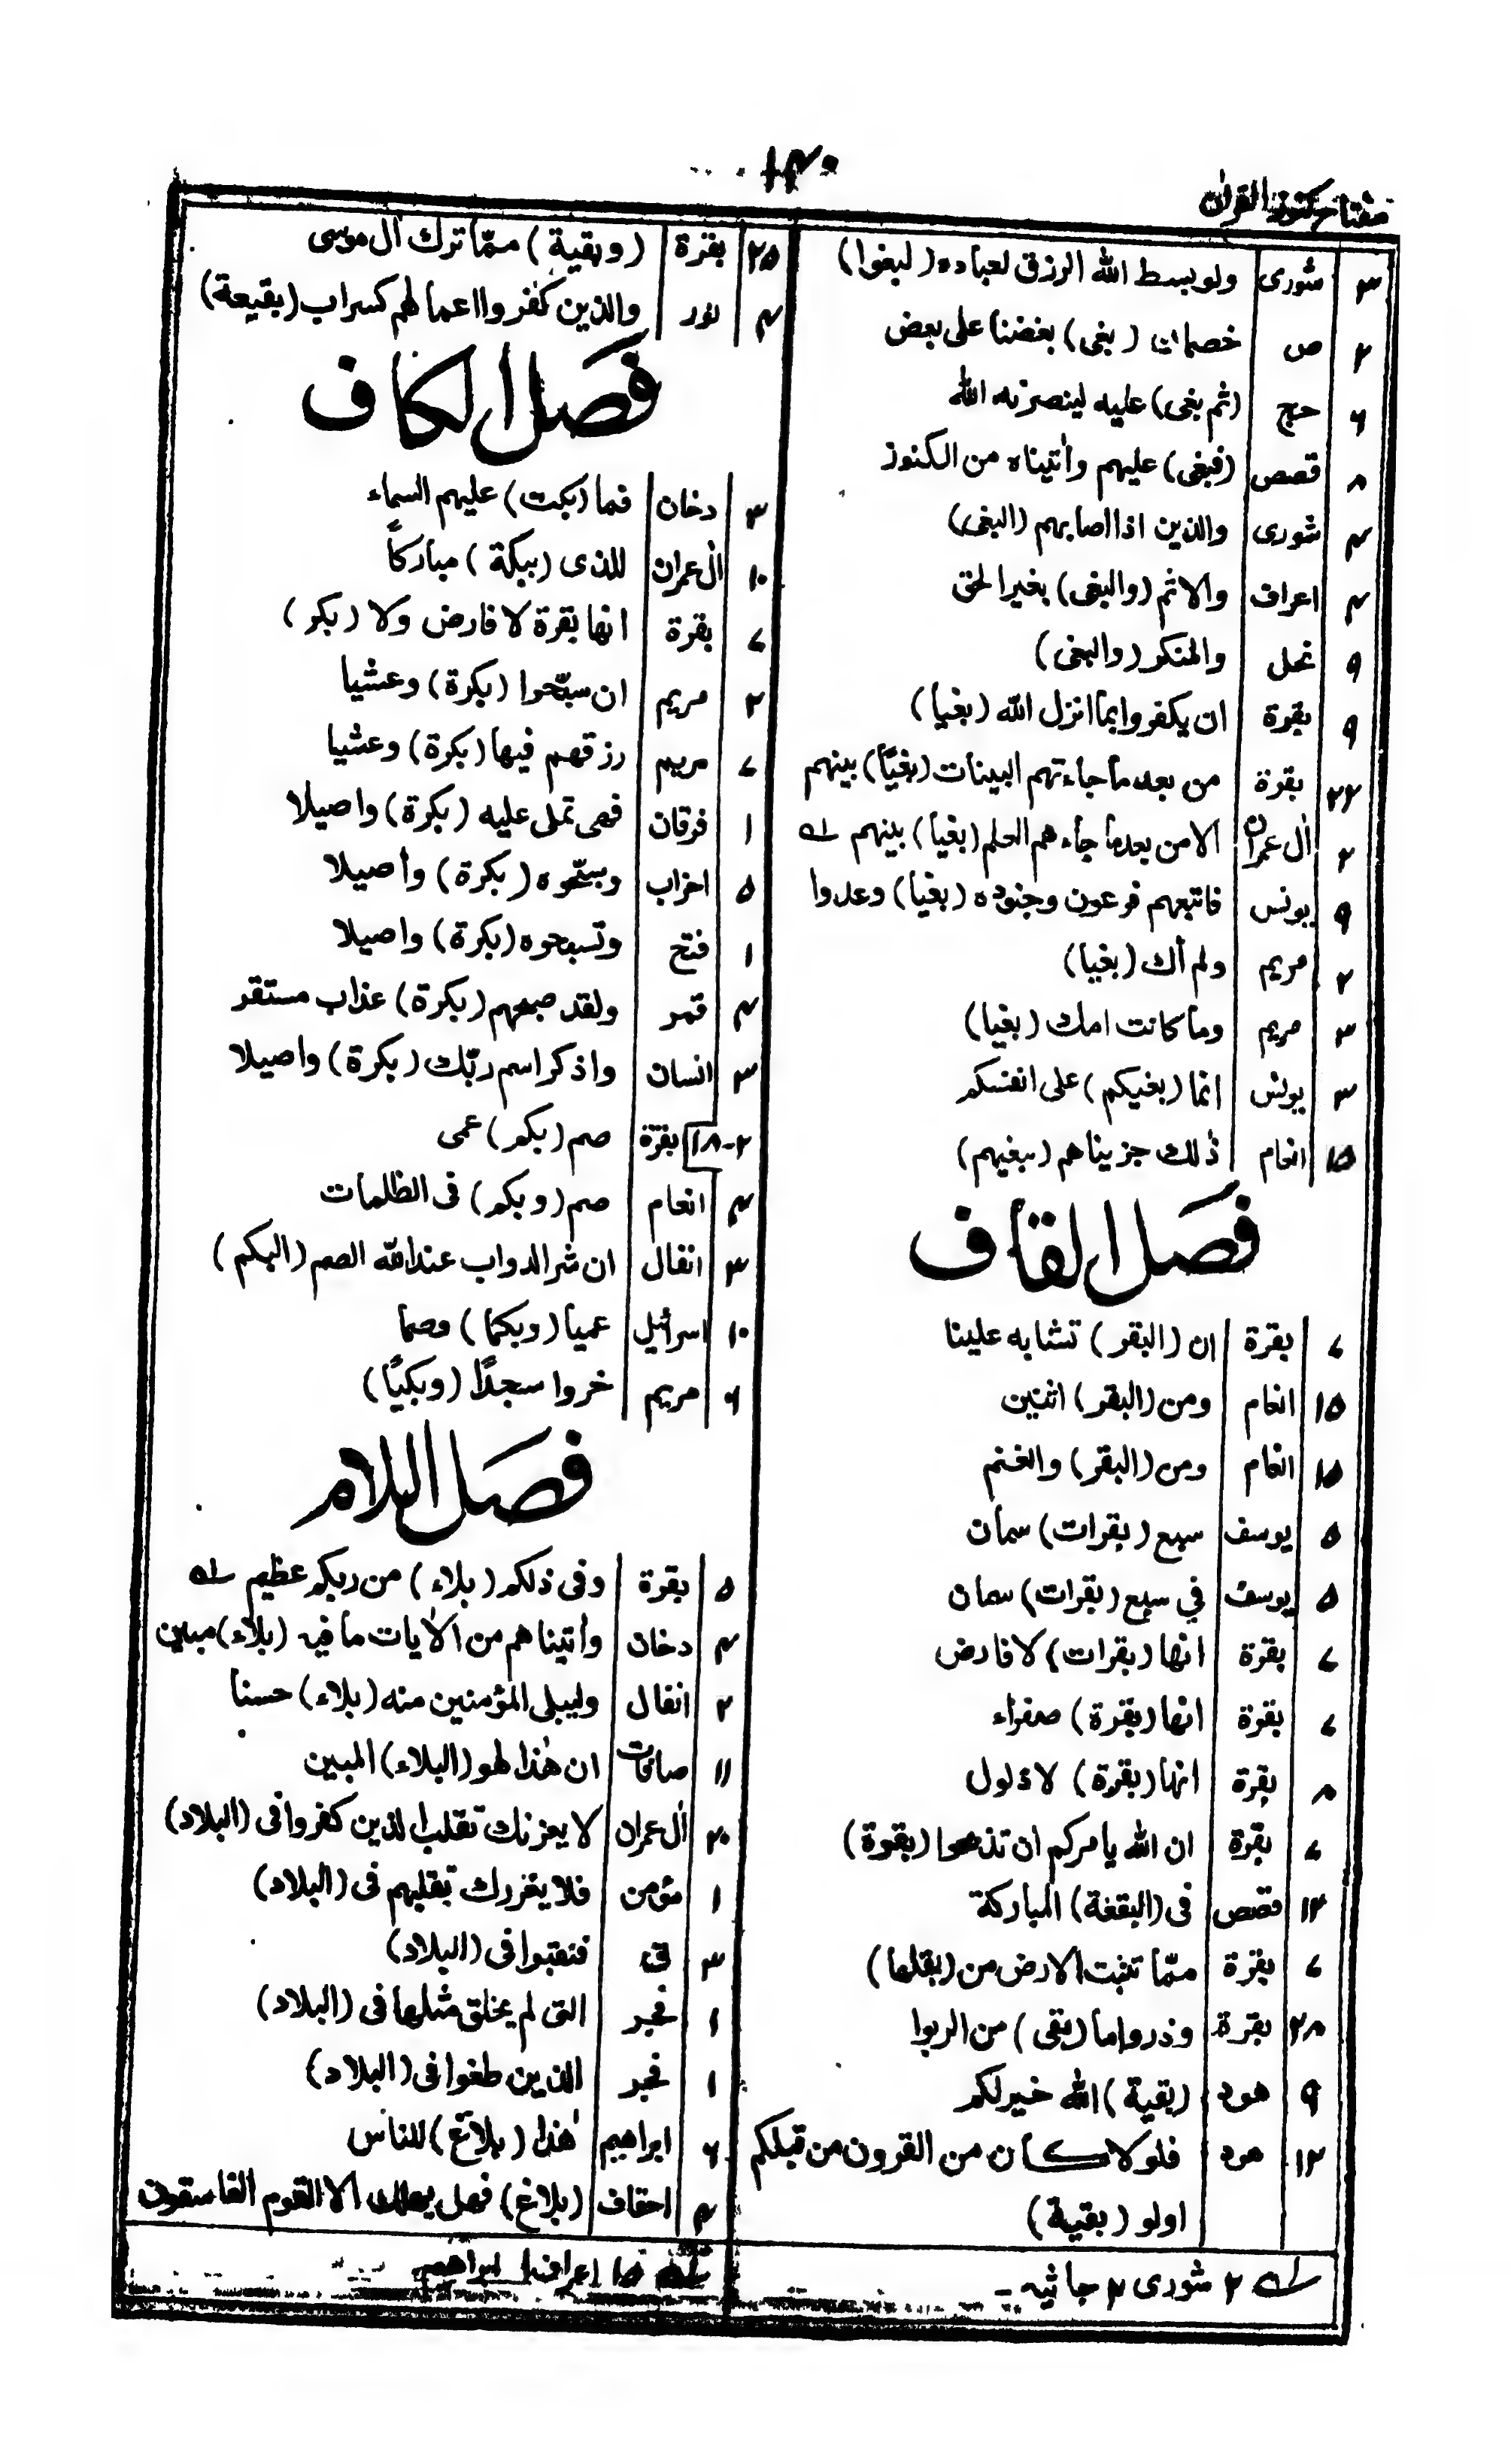 ۱۴۰
مفتاح کنوز القرآن
۳ شوری ولو بسط الله الرزق لعباده (لبغوا)
۲ ص خصمان (بغی) بعضنا علی بعض
۶ حج (ثم بغی) علیه لینصرنه الله
۸ قصص (فبغی) علیهم واٰتیناه من الکنوز
۴ شوری والذین اذا اصابهم (البغی)
۴ اعراف والاثم (والبغی) بغیر الحق
۹ نحل والمنکر (والبغی)
۹ بقرة ان یکفروا بما انزل الله (بغیا)
۲۲ بقرة من بعد ما جاءتهم البینات (بغیًا) بینهم
۲ اٰل عمران الا من بعد ما جاءهم العلم (بغیا) بینهم ؎
۹ یونس فاتبعهم فرعون وجنوده (بغیا) وعدوا
۲ مریم ولم أک (بغیا)
۳ مریم وما کانت امک (بغیا)
۳ یونس انما (بغیکم) علی انفسکم
۱۵ انعام ذٰلک جزیناهم (ببغیهم)
فصل القاف
۷ بقرة ان (البقر) تشابه علینا
۱۵ انعام ومن (البقر) اثنین
۱۵ انعام ومن (البقر) والغنم
۵ یوسف سبع (بقرات) سمان
۵ یوسف فی سبع (بقرات) سمان
۷ بقرة انها (بقرات) لا فارض
۷ بقرة انها (بقرة) صفراء
۸ بقرة انها (بقرة) لا ذلول
۷ بقرة ان الله یامرکم ان تذبحوا (بقرة)
۱۴ قصص فی (البقعة) المبارکة
۷ بقرة ممّا تنبت الارض من (بقلها)
۲۸ بقرة وذروا ما (بقی) من الربوا
۹ هود (بقیة) الله خیر لکم
۱۲ هود فلولا کان من القرون من قبلکم
اولو (بقیة)
؎ ۲ شوری ۲ جاثیه -
۲۵ بقرة (وبقیة) ممّا ترک اٰل موسی
۴ نور والذین کفروا اعمالهم کسراب (بقیعة)
فصل الکاف
۳ دخان فما (بکت) علیهم السماء
۱۰ اٰل عمران للذی (ببکة) مبارکاً
۷ بقرة انها بقرة لا فارض ولا (بکر)
۲ مریم ان سبّحوا (بکرة) وعشیا
۷ مریم رزقهم فیها (بکرة) وعشیا
۱ فرقان فهی تملی علیه (بکرة) واصیلا
۵ احزاب وسبّحوه (بکرة) وأصیلا
۱ فتح وتسبحوه (بکرة) واصیلا
۴ قمر ولقد صبحهم (بکرة) عذاب مستقر
۳ انسان واذکر اسم ربّک (بکرة) واصیلا
۲-۱۸ بقرة صم (بکم) عمی
۴ انعام صم (وبکم) فی الظلمات
۳ انفال ان شر الدواب عند الله الصم (البکم)
۱۰ اسرائیل عمیا (وبکما) وصما
۶ مریم خروا سجدًا (وبکیًا)
فصل اللام
۵ بقرة وفی ذلکم (بلاء) من ربکم عظیم ؎
۴ دخان واٰتیناهم من الاٰیات ما فیه (بلاء) مبین
۲ انفال ولیبلی المؤمنین منه (بلاء) حسنا
۱۱ صافات ان هٰذا لهو (البلاء) المبین
۲۰ اٰل عمران لا یغرنک تقلب الذین کفروا فی (البلاد)
۱ مؤمن فلا یغررک تقلبهم فی (البلاد)
۳ ق فنقبوا فی (البلاد)
۱ فجر التی لم یخلق مثلها فی (البلاد)
۱ فجر الذین طغوا فی (البلاد)
۶ ابراهیم هٰذا (بلاغ) للناس
۴ احقاف (بلاغ) فهل یهلک الا القوم الفاسقون
اعراف ابراهیم